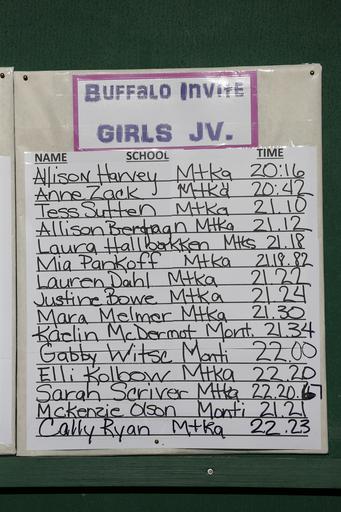 BUFFALO INVITE
GIRLS JV.
NAME SCHOOL TIME
Allison Harvey Mtka 20:16
Anne Zack Mtka 20:42
Tess Sutten Mtka 21.10
Allison Berdagn Mtka 21.12
Laura Hallbarkken Mtka 21.18
Mia Pankoff Mtka 21.18.82
Lauren Dahl Mtka 21.22
Justine Bowe Mtka 21.24
Mara Melmer Mtka 21.30
Kaelin McDermot Monti. 21.34
Gabby Witsc Monti 22.00
Elli Kolbow Mtka 22.20
Sarah Scriver Mtka 22.20.67
Mckenzie Olson Monti 21.21
Cally Ryan Mtka 22.23